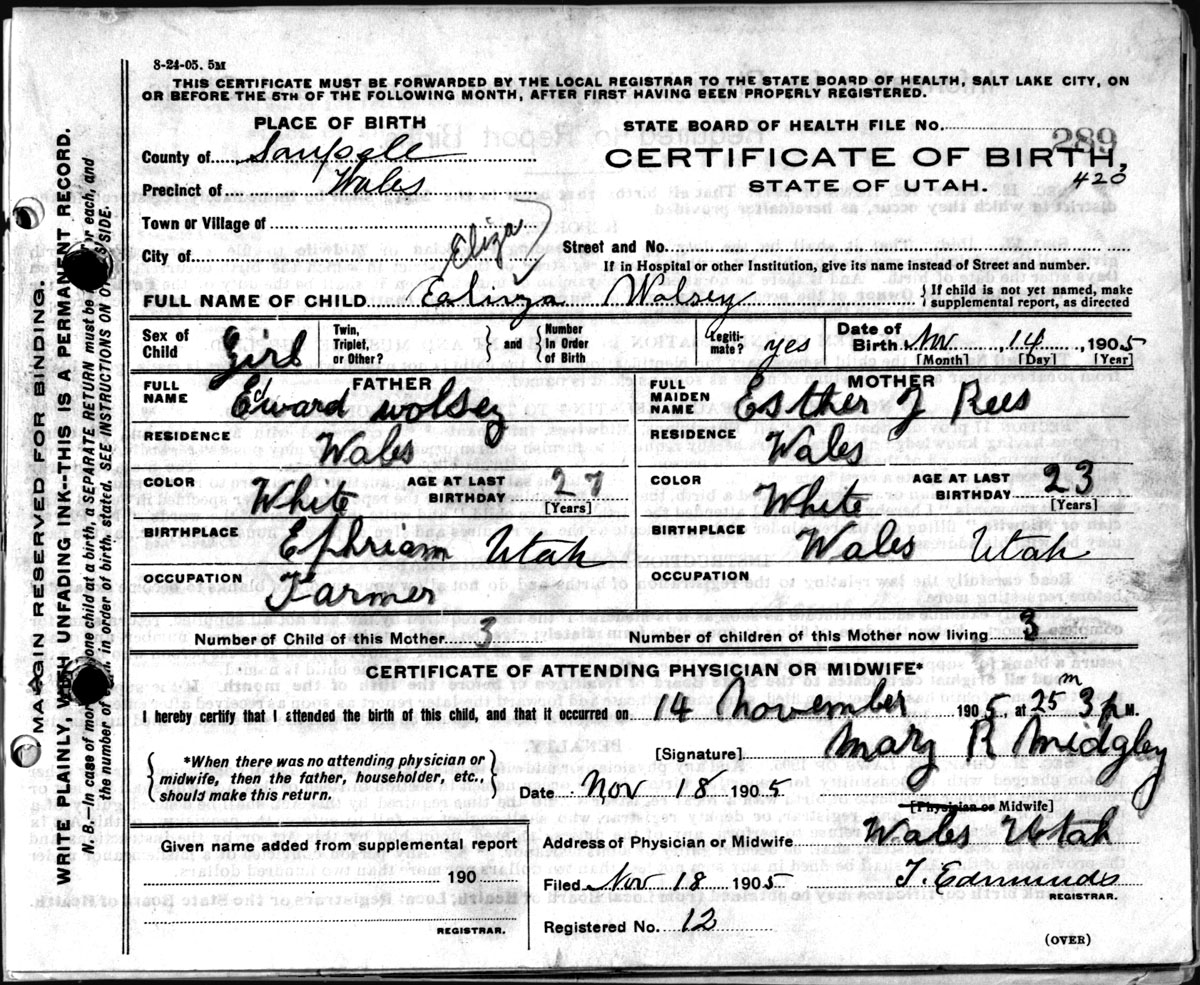 8-24-05. 5M
THIS CERTIFICATE MUST BE FORWARDED BY THE LOCAL REGISTRAR TO THE STATE BOARD OF HEALTH, SALT LAKE CITY, ON
OR BEFORE THE 5TH OF THE FOLLOWING MONTH, AFTER FIRST HAVING BEEN PROPERLY REGISTERED.
PLACE OF BIRTH
County of Sanpete
Precinct of Wales
Town or Village of
City of
STATE BOARD OF HEALTH FILE No. 289
CERTIFICATE OF BIRTH,
STATE OF UTAH. 420
Street and No.
If in Hospital or other Institution, give its name instead of Street and number.
Eliza
FULL NAME OF CHILD Ealiza Wolsey { If child is not yet named, make
supplemental report, as directed
Sex of Child Girl Twin, Triplet, or Other? } and { Number In Order of Birth Legiti-mate? yes Date of Birth Nov 14 1905
[Month] [Day] [Year]
FATHER
FULL NAME Edward Wolsey
RESIDENCE Wales
COLOR White AGE AT LAST BIRTHDAY 27 [Years]
BIRTHPLACE Ephriam Utah
OCCUPATION Farmer
MOTHER
FULL MAIDEN NAME Esther J Rees
RESIDENCE Wales
COLOR White AGE AT LAST BIRTHDAY 23 [Years]
BIRTHPLACE Wales Utah
OCCUPATION
Number of Child of this Mother 3 Number of children of this Mother now living 3
CERTIFICATE OF ATTENDING PHYSICIAN OR MIDWIFE*
I hereby certify that I attended the birth of this child, and that it occurred on 14 November 1905, at 25 m 3 p M.
{ *When there was no attending physician or
midwife, then the father, householder, etc.,
should make this return. }
[Signature] Mary R Midgley
Date Nov 18 1905
[Physician or Midwife]
Given name added from supplemental report
190
REGISTRAR.
Address of Physician or Midwife Wales Utah
Filed Nov 18 1905 T. Edmunds
REGISTRAR.
Registered No. 12
(OVER)
MARGIN RESERVED FOR BINDING
WRITE PLAINLY, WITH UNFADING INK--THIS IS A PERMANENT RECORD.
N. B.--In case of more one child at a birth, a SEPARATE RETURN must be for each, and
the number of in order of birth, stated. SEE INSTRUCTIONS ON SIDE.